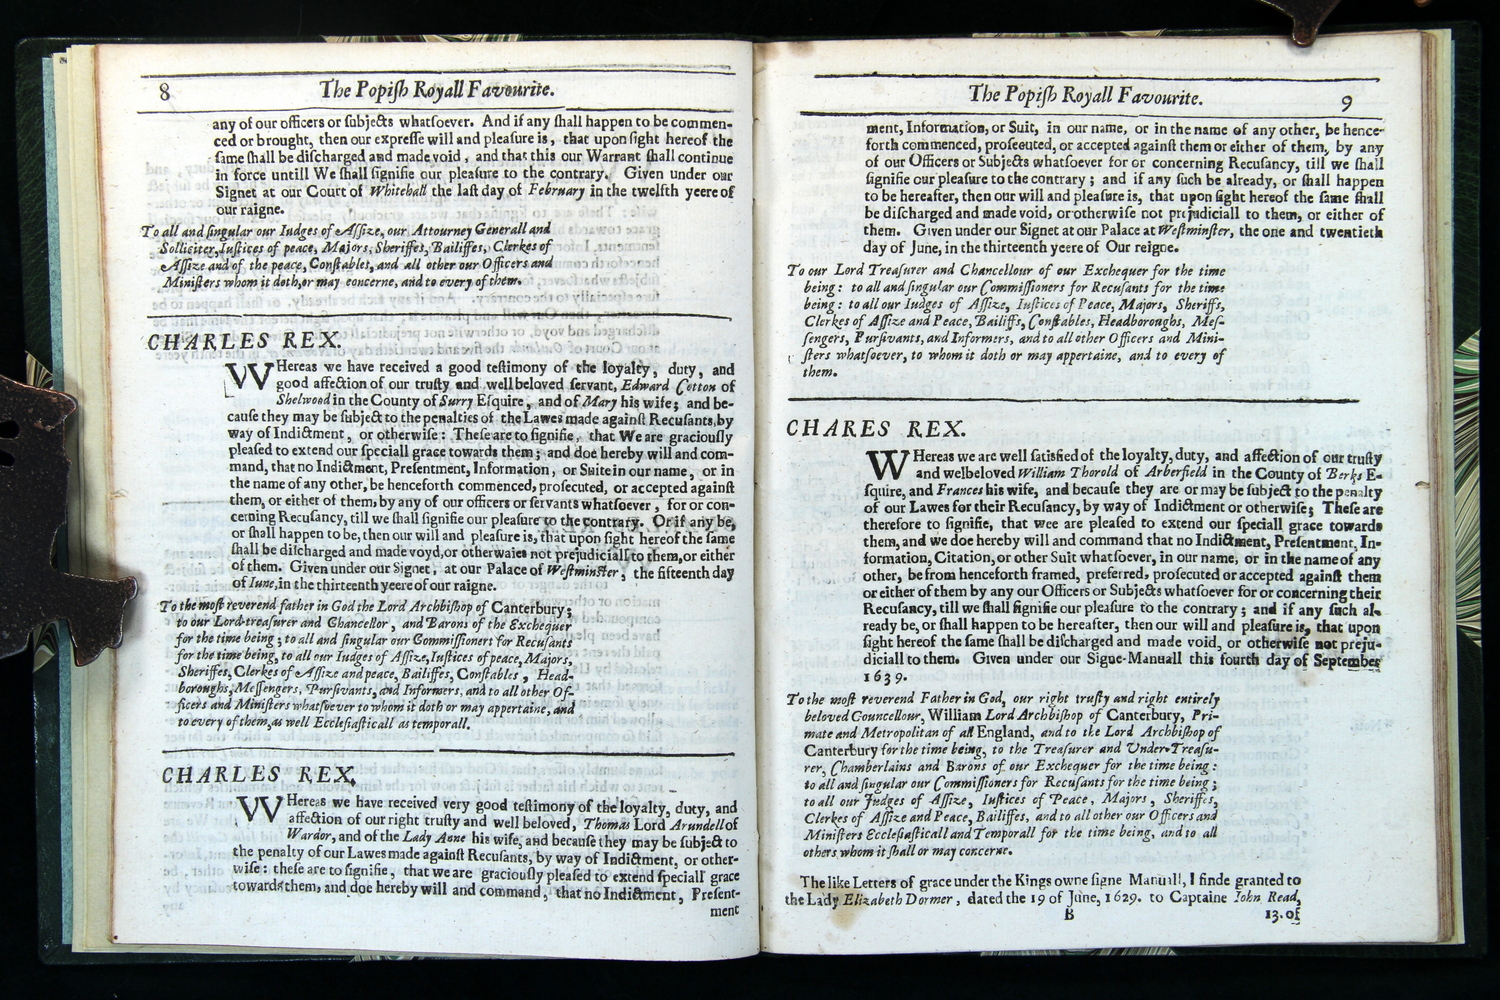 8
The Popiſh Royall Favourite.
any of our officers or ſubjects whatſoever. And if any ſhall happen to be commen-
ced or brought, then our expreſſe will and pleaſure is, that upon ſight hereof the
ſame ſhall be diſcharged and made void, and that this our Warrant ſhall continue
in force untill We ſhall ſignifie our pleaſure to the contrary. Given under our
Signet at our Court of Whitehall the laſt day of February in the twelfth yeere of
our raigne.
To all and ſingular our Iudges of Aſſize, our Attourney Generall and
Solliciter, Iuſtices of peace, Majors, Sheriffes, Bailiffes, Clerkes of
Aſſize and of the peace, Conſtables, and all other our Officers and
Miniſters whom it doth, or may concerne, and to every of them.
CHARLES REX.
WHereas we have received a good teſtimony of the loyalty, duty, and
good affection of our truſty and wellbeloved ſervant, Edward Cotton of
Shelwood in the County of Surry Eſquire, and of Mary his wife; and be-
cauſe they may be ſubject to the penalties of the Lawes made againſt Recuſants, by
way of Indictment, or otherwiſe: Theſe are to ſignifie, that We are graciouſly
pleaſed to extend our ſpeciall grace towards them; and doe hereby will and com-
mand, that no Indictment, Preſentment, Information, or Suite in our name, or in
the name of any other, be henceforth commenced, proſecuted, or accepted againſt
them, or either of them, by any of our officers or ſervants whatſoever, for or con-
cerning Recuſancy, till we ſhall ſignifie our pleaſure to the contrary. Or if any be,
or ſhall happen to be, then our will and pleaſure is, that upon ſight hereof the ſame
ſhall be diſcharged and made voyd, or otherwaies not prejudiciall to them, or either
of them. Given under our Signet, at our Palace of Weſtminſter, the fifteenth day
of Iune, in the thirteenth yeere of our raigne.
To the moſt reverend father in God the Lord Archbiſhop of Canterbury;
to our Lord treaſurer and Chancellor, and Barons of the Exchequer
for the time being; to all and ſingular our Commiſſioners for Recuſants
for the time being, to all our Iudges of Aſſize, Iuſtices of peace, Majors,
Sheriffes, Clerkes of Aſſize and peace, Bailiffes, Conſtables, Head-
boroughs, Meſſengers, Purſivants, and Informers, and to all other Of-
ficers and Miniſters whatſoever to whom it doth or may appertaine, and
to every of them, as well Eccleſiaſticall as temporall.
CHARLES REX.
WHereas we have received very good teſtimony of the loyalty, duty, and
affection of our right truſty and well beloved, Thomas Lord Arundell of
Wardor, and of the Lady Anne his wife, and becauſe they may be ſubject to
the penalty of our Lawes made againſt Recuſants, by way of Indictment, or other-
wiſe: theſe are to ſignifie, that we are graciouſly pleaſed to extend ſpeciall grace
towards them, and doe hereby will and command, that no Indictment, Preſent-
ment
The Popiſh Royall Favourite.
9
ment, Information, or Suit, in our name, or in the name of any other, be hence-
forth commenced, proſecuted, or accepted againſt them or either of them, by any
of our Officers or Subjects whatſoever for or concerning Recuſancy, till we ſhall
ſignifie our pleaſure to the contrary; and if any ſuch be already, or ſhall happen
to be hereafter, then our will and pleaſure is, that upon ſight hereof the ſame ſhall
be diſcharged and made void, or otherwiſe not prejudiciall to them, or either of
them. Given under our Signet at our Palace at Weſtminſter, the one and twentieth
day of June, in the thirteenth yeere of Our reigne.
To our Lord Treaſurer and Chancellour of our Exchequer for the time
being: to all and ſingular our Commiſſioners for Recuſants for the time
being: to all our Iudges of Aſſize, Iuſtices of Peace, Majors, Sheriffs,
Clerkes of Aſſize and Peace, Bailiffs, Conſtables, Headboroughs, Meſ-
ſengers, Purſivants, and Informers, and to all other Officers and Mini-
ſters whatſoever, to whom it doth or may appertaine, and to every of
them.
CHARES REX.
WHereas we are well ſatisfied of the loyalty, duty, and affection of our truſty
and welbeloved William Thorold of Arberfield in the County of Berks E-
ſquire, and Frances his wife, and becauſe they are or may be ſubject to the penalty
of our Lawes for their Recuſancy, by way of Indictment or otherwiſe; Theſe are
therefore to ſignifie, that wee are pleaſed to extend our ſpeciall grace towards
them, and we doe hereby will and command that no Indictment, Preſentment, In-
formation, Citation, or other Suit whatſoever, in our name, or in the name of any
other, be from henceforth framed, preferred, proſecuted or accepted againſt them
or either of them by any our Officers or Subjects whatſoever for or concerning their
Recuſancy, till we ſhall ſignifie our pleaſure to the contrary; and if any ſuch al-
ready be, or ſhall happen to be hereafter, then our will and pleaſure is, that upon
ſight hereof the ſame ſhall be diſcharged and made void, or otherwiſe not preju-
diciall to them. Given under our Signe-Manuall this fourth day of September
1639.
To the moſt reverend Father in God, our right truſty and right entirely
beloved Councellour, William Lord Archbiſhop of Canterbury, Pri-
mate and Metropolitan of all England, and to the Lord Archbiſhop of
Canterbury for the time being, to the Treaſurer and Under-Treaſu-
rer, Chamberlains and Barons of our Exchequer for the time being:
to all and ſingular our Commiſſioners for Recuſants for the time being;
to all our Judges of Aſſize, Iuſtices of Peace, Majors, Sheriffes,
Clerkes of Aſſize and Peace, Bailiffes, and to all other our Officers and
Miniſters Eccleſiaſticall and Temporall for the time being, and to all
others whom it ſhall or may concerne.
The like Letters of grace under the Kings owne ſigne Manuall, I finde granted to
the Lady Elizabeth Dormer, dated the 19 of June, 1629. to Captaine Iohn Read,
B
13. of